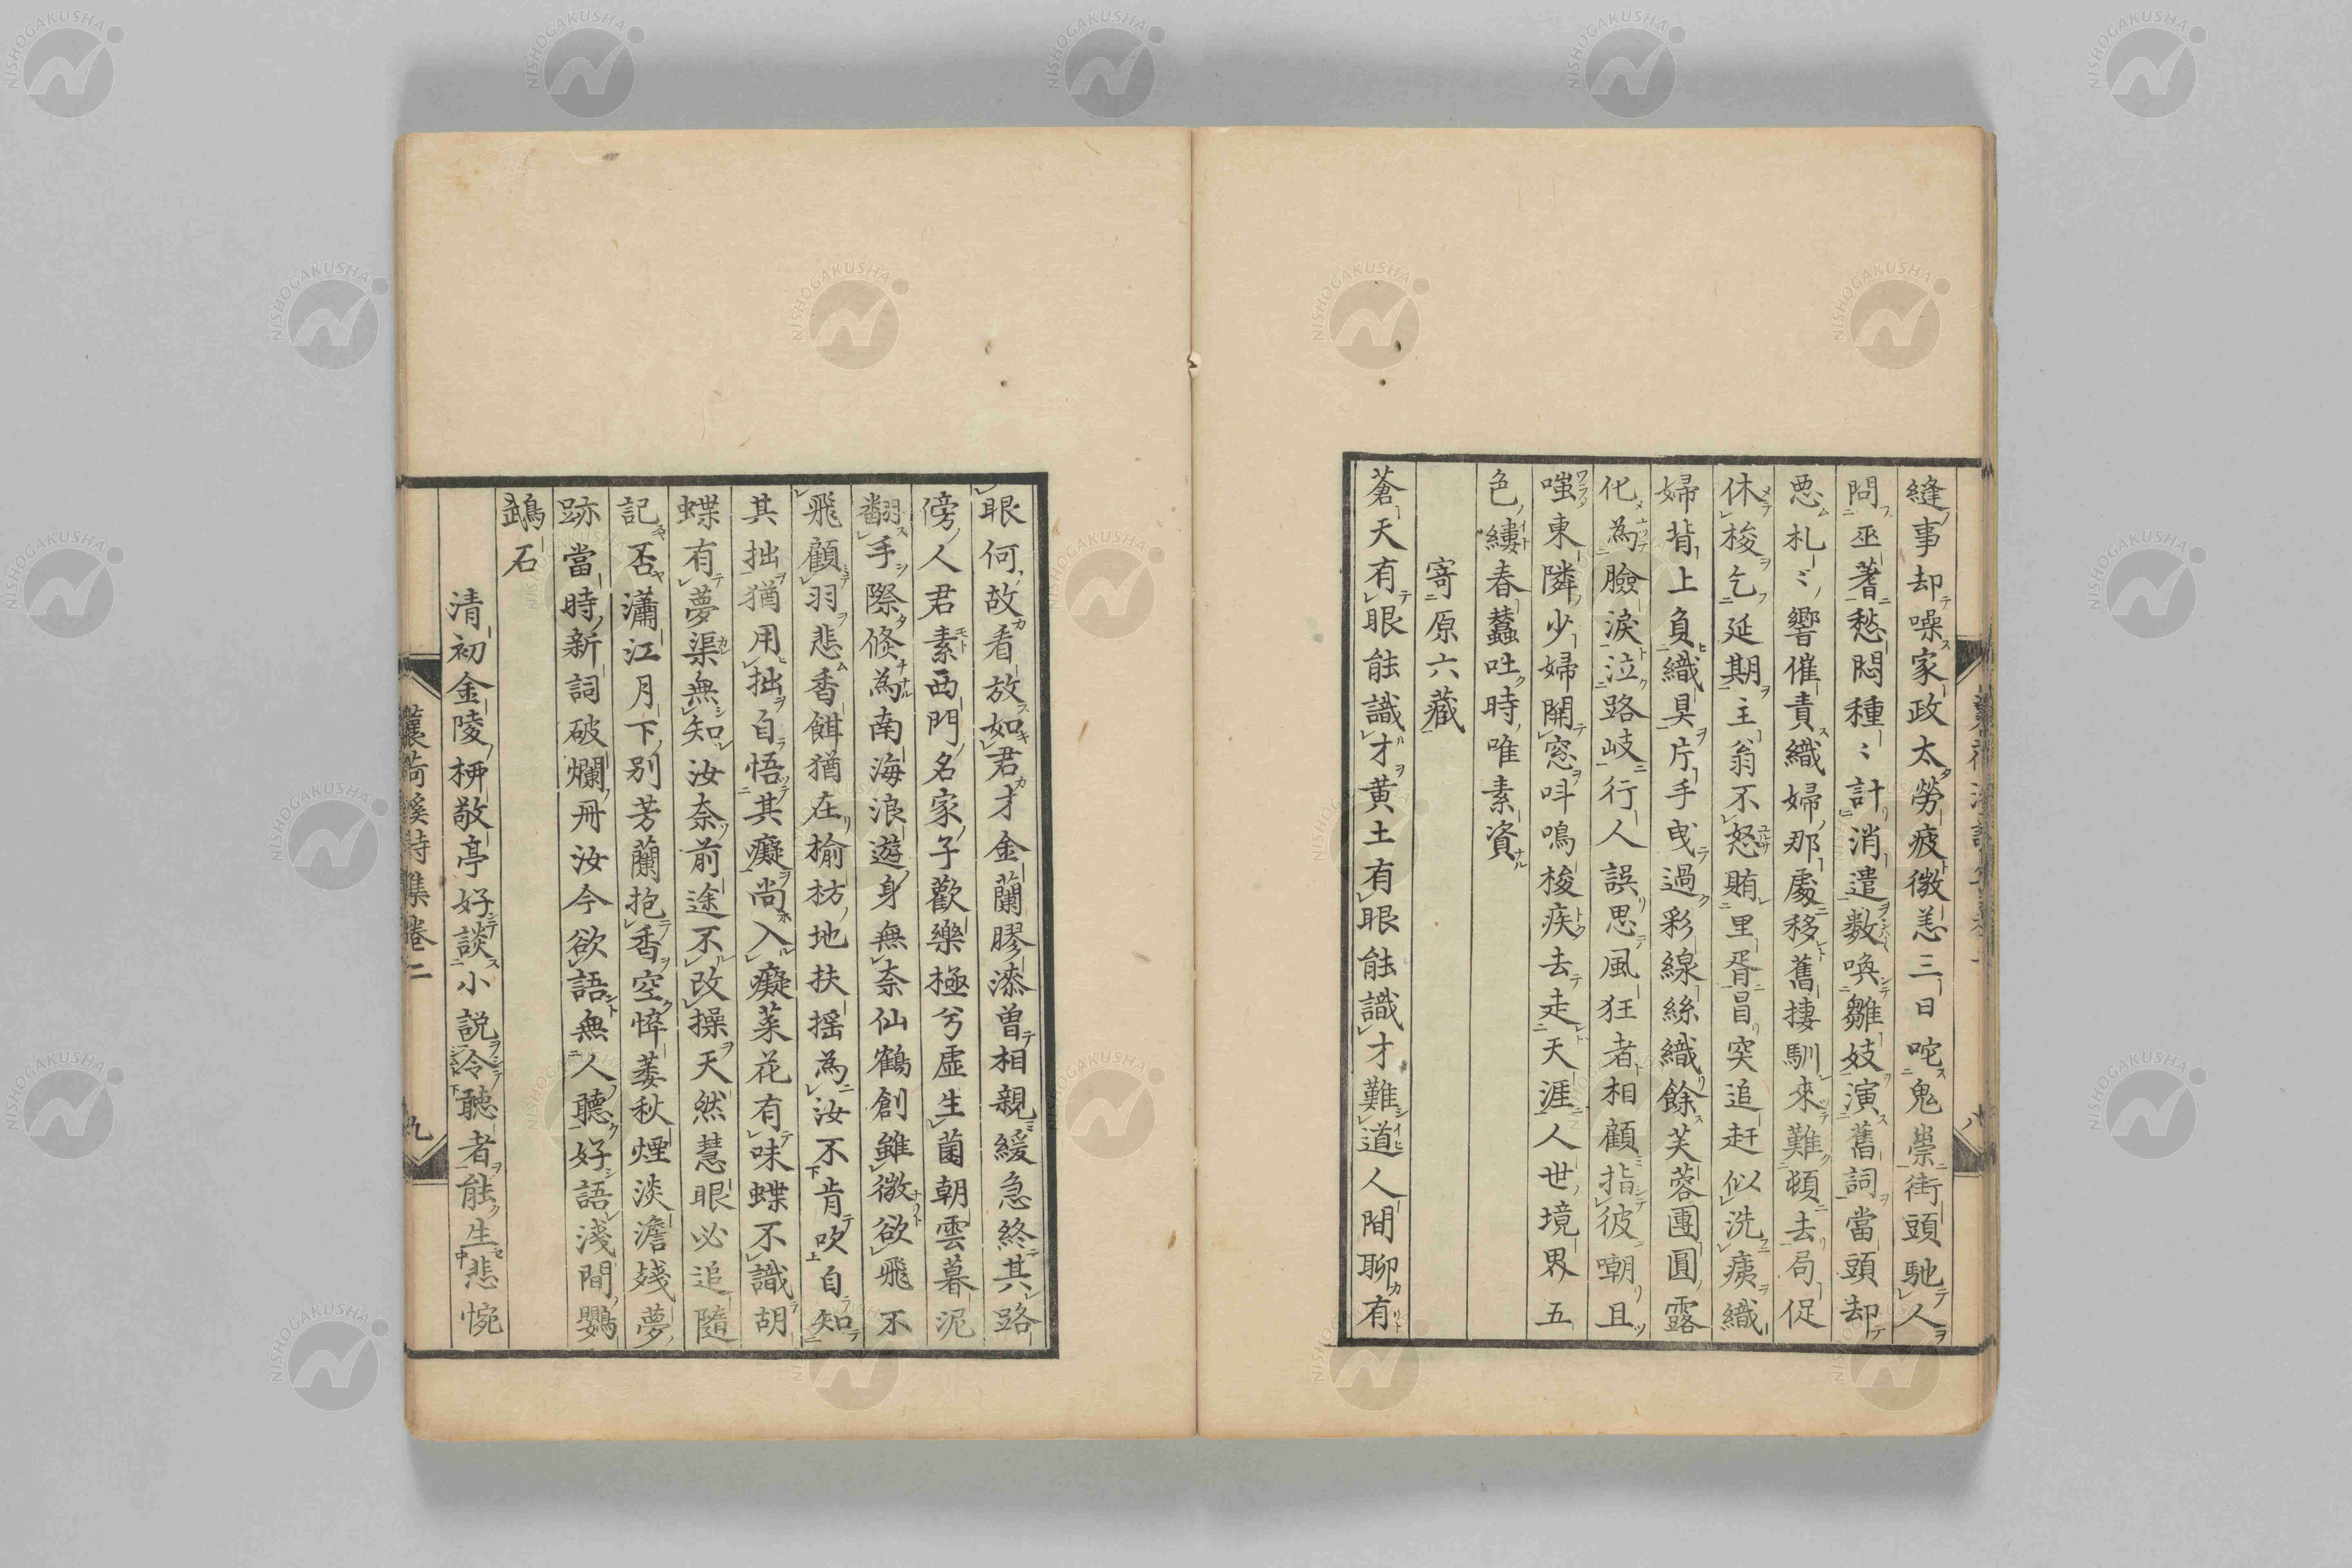 縫事却噪家政太勞疲微恙三日咜鬼祟街頭馳人
問巫蓍愁悶種〻計消遣數喚雛妓演舊詞當頭却
悪札〻響催責織婦那處移舊摟馴來難頓去局促
休梭乞延期主翁不怒賄里胥冒突追赶似洗痍織
婦背上負織具片手曵過彩線絲織餘芙蓉團圓露
化為臉淚泣路岐行人誤思風狂者相顧指彼嘲且
嗤東隣少婦開窓呌鳴梭疾去走天涯人世境界五
色縷春蠶吐時唯素資
寄原六藏
蒼天有眼能識才黄土有眼能識才難道人間聊有
眼何故看放如君才金蘭膠漆曽相親緩急終其路
傍人君素西門名家子歡樂極兮虛生菌朝雲暮泥
翻手際倏為南海浪遊身無奈仙鶴創雖微欲飛不
飛顧羽悲香餌猶在楡枋地扶揺為汝不肯吹自知
其拙猶用拙自悟其癡尚入癡菜花有味蝶不識胡
蝶有夢渠無知汝奈前途不改操天然慧眼必追隨
記否瀟江月下別芳蘭抱香空悴萎秋煙淡澹殘夢
跡當時新詞破爛冊汝今欲語無人聽好語淺間鸚
鵡石
清初金陵柳敬亭好談小説令聽者能生悲惋
蘘荷溪詩集卷二
九
八
NISHOGAKUSHA